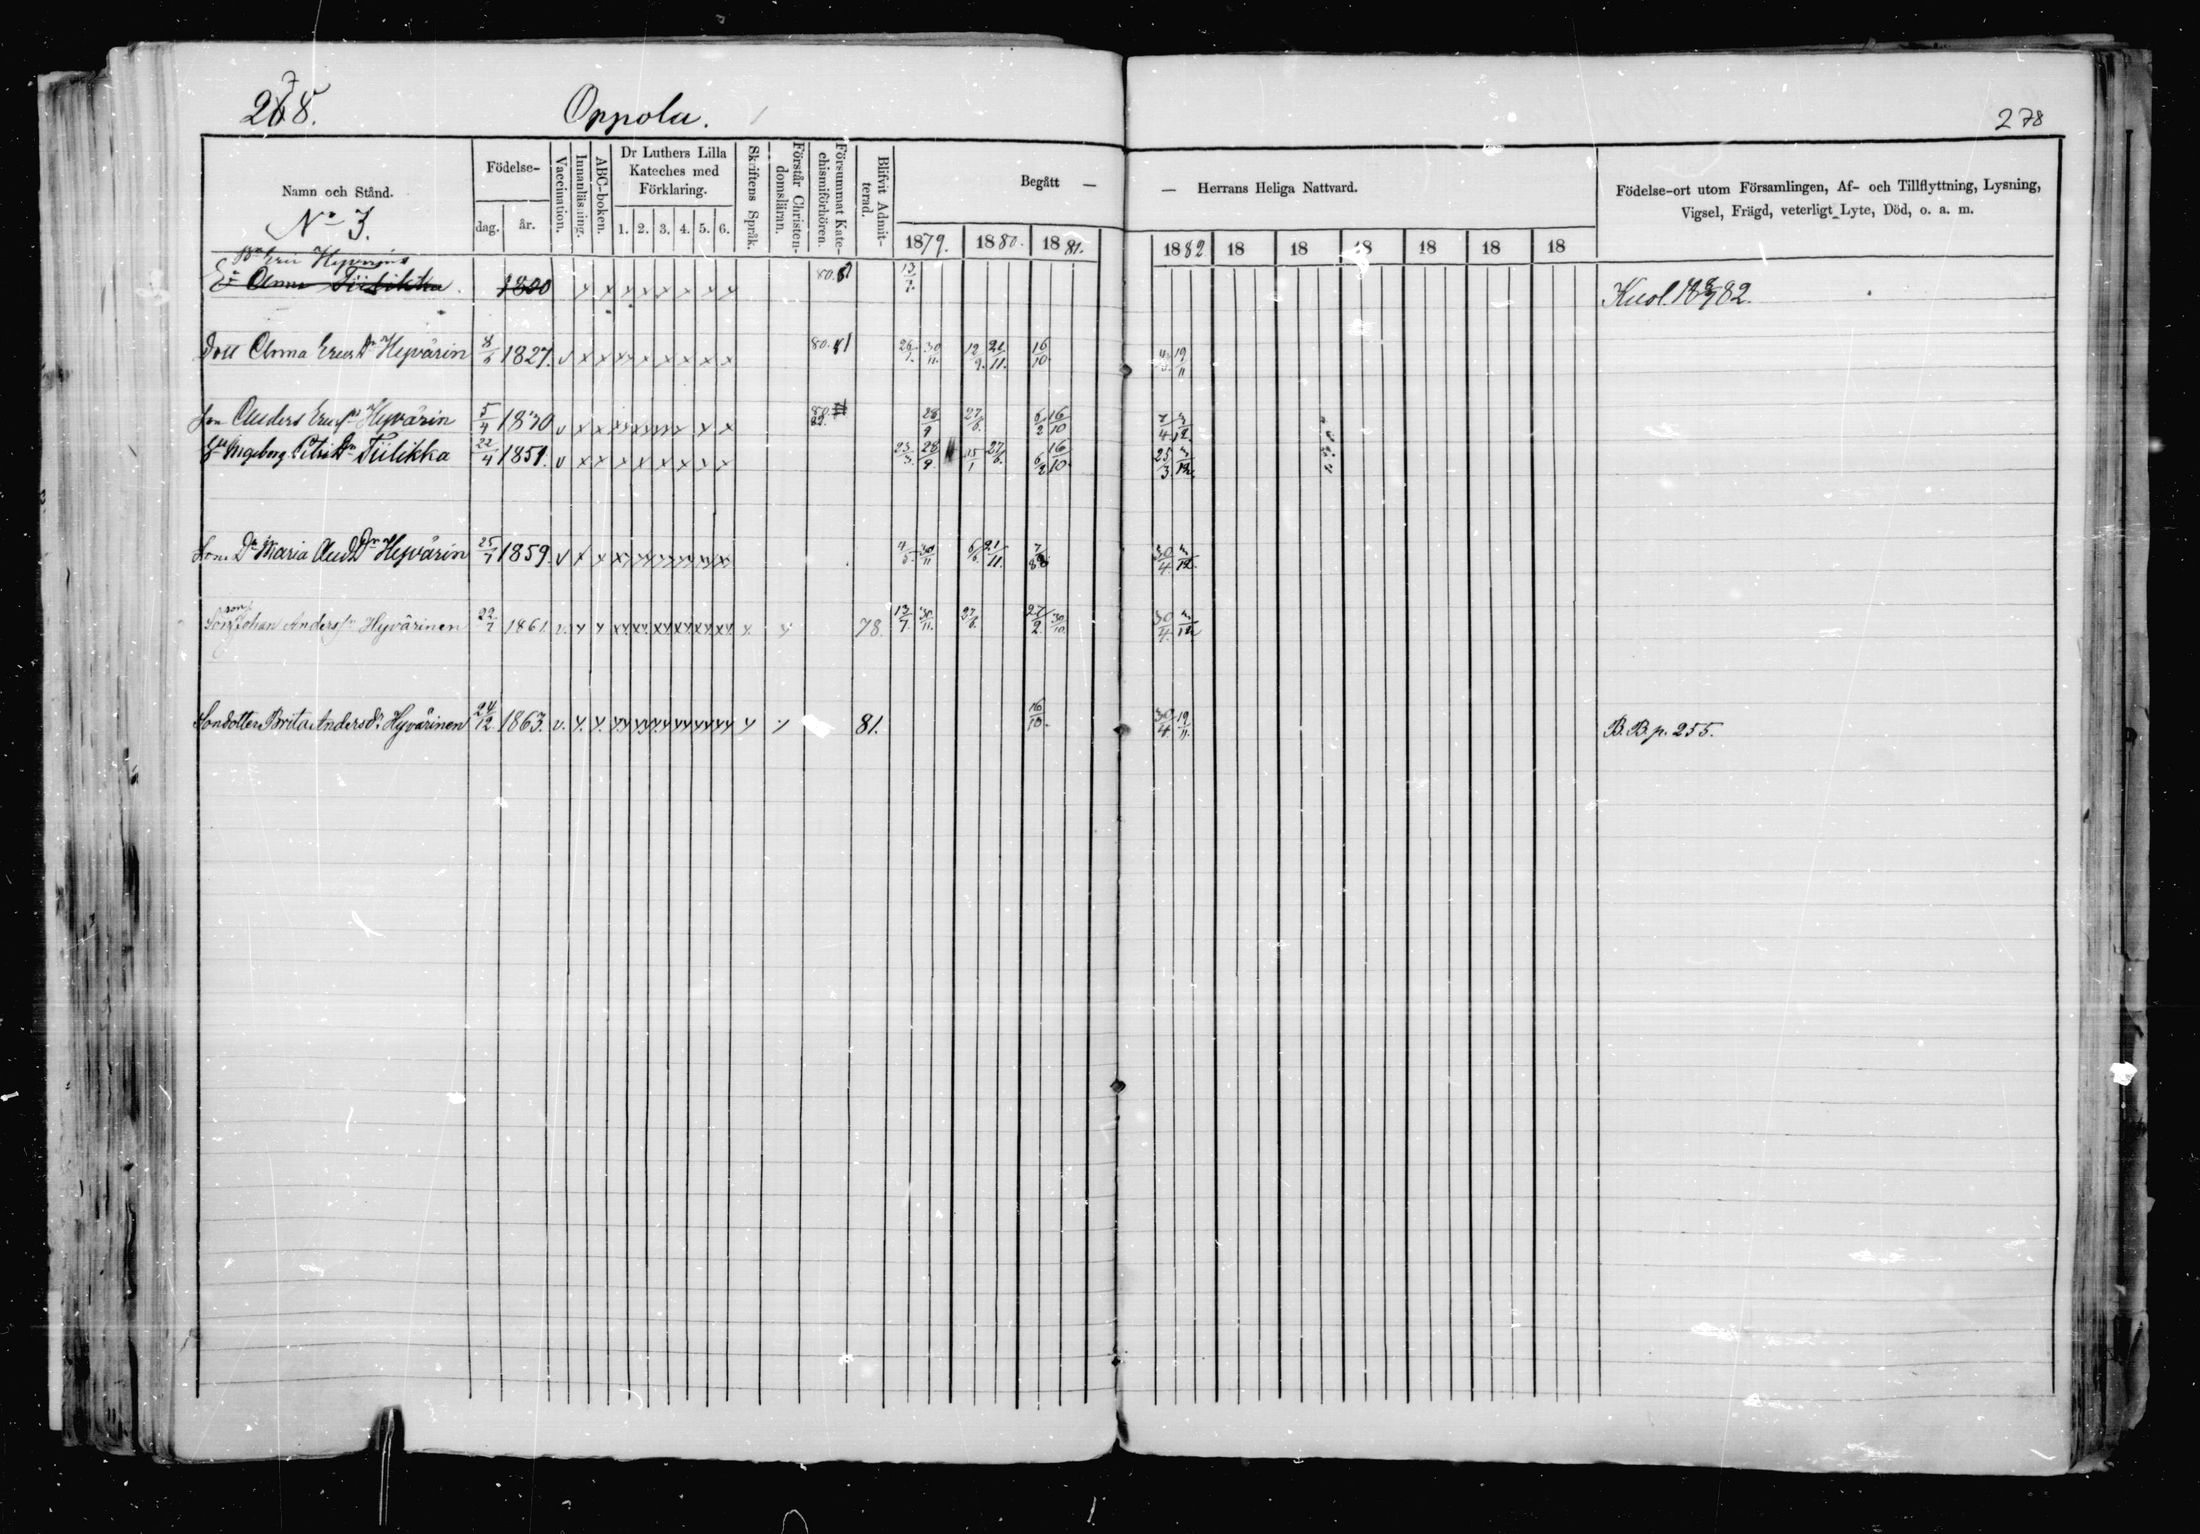 278. Oppola. 278
Namn och Stånd. Födelse- dag. år. Vaccination. Innanläsning. ABC-boken. Dr Luthers Lilla Kateches med Förklaring. 1. 2. 3. 4. 5. 6. Skriftens Språk. Förstår Christen-domsläran. Försummat Kate-chismiförhören. Blifvit Admit-terad. Begått — — Herrans Heliga Nattvard. Födelse-ort utom Församlingen, Af- och Tillflyttning, Lysning, Vigsel, Frägd, veterligt Lyte, Död, o. a. m.
No 3.
1879. 1880. 1881. 1882 18 18 18 18 18 18
Eric Hyvärins
Anna Tiilikka 1800 x x x x x x x x 80. 81 13/7. Kuol. 82.
Dott Anna Erics Dr Hyvärin 8/6 1827. v x x x x x x x x 80. 81 26/1. 30/11. 12/9. 21/11. 16/10 19/11
Son Anders Erics Sn Hyvärin 5/4 1830 v x x x x x x x x 80. 82. 28/9 27/6. 6/2 16/10 7/4 3/12.
Hu Ingeborg Petri Dr Tiilikka 22/4 1851. v x x x x x x x x 23/3. 28/9 15/1 27/6. 6/2 16/10. 25/3 3/12.
Sons Dr Maria And Dr Hyvärin 25/7 1859. v x x xx xx xx xx xx xx 4/5. 30/11 6/6. 21/11. 30/4. 3/12.
Sonson Johan Anders Sn Hyvärinen 22/7 1861. v. x x xx xx xx xx xx xx x x 78. 13/7. 30/11. 27/6. 27/2. 30/10. 30/4. 3/12
Sondotter Brita Andersdr Hyvärinen 24/12 1863. v. x. x. xx xx xx xx xx xx x x 81. 16/10. 30/4. 19/11. B. B. p. 255.